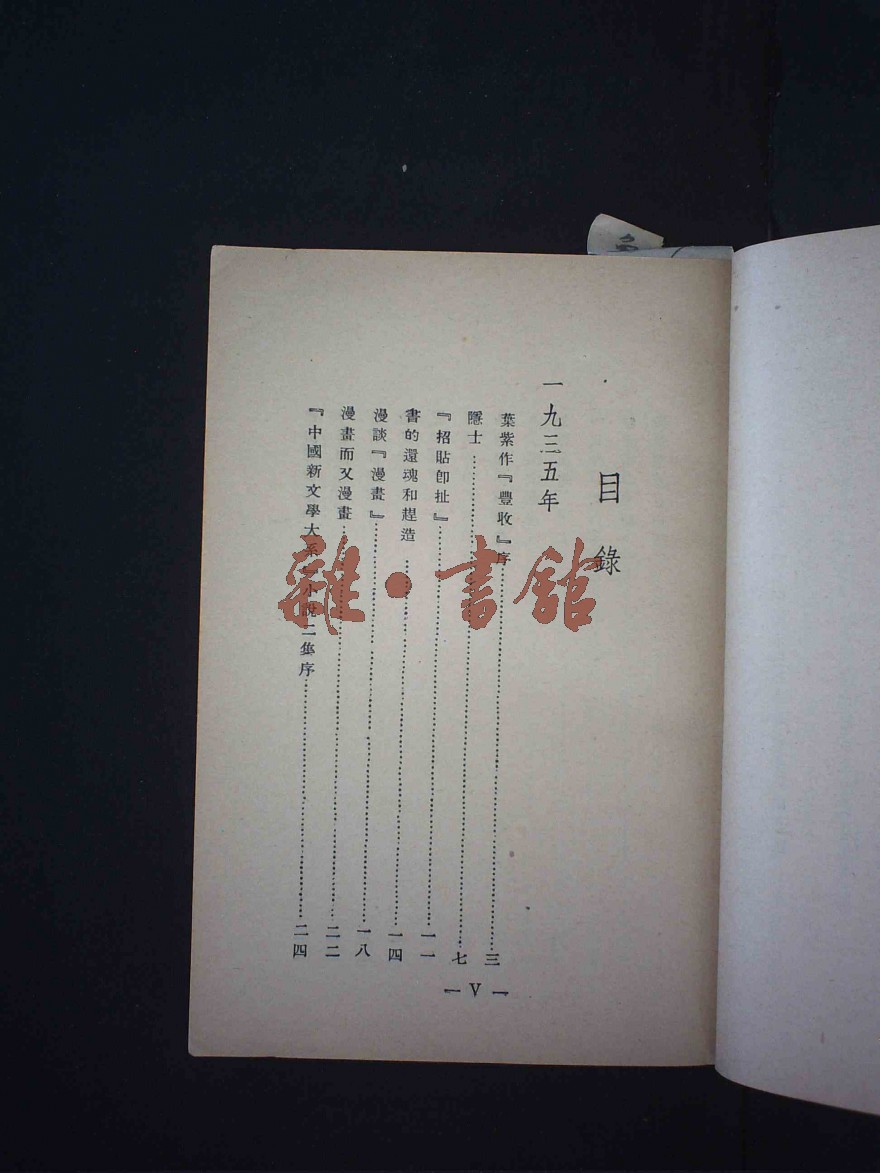 目錄
一九三五年
葉紫作『豐收』序……三
隱士……七
『招貼即扯』……一一
書的還魂和趕造……一四
漫談『漫畫』……一八
漫畫而又漫畫……二二
『中國新文學大系』小說二集序……二四
— V —
雜·書館